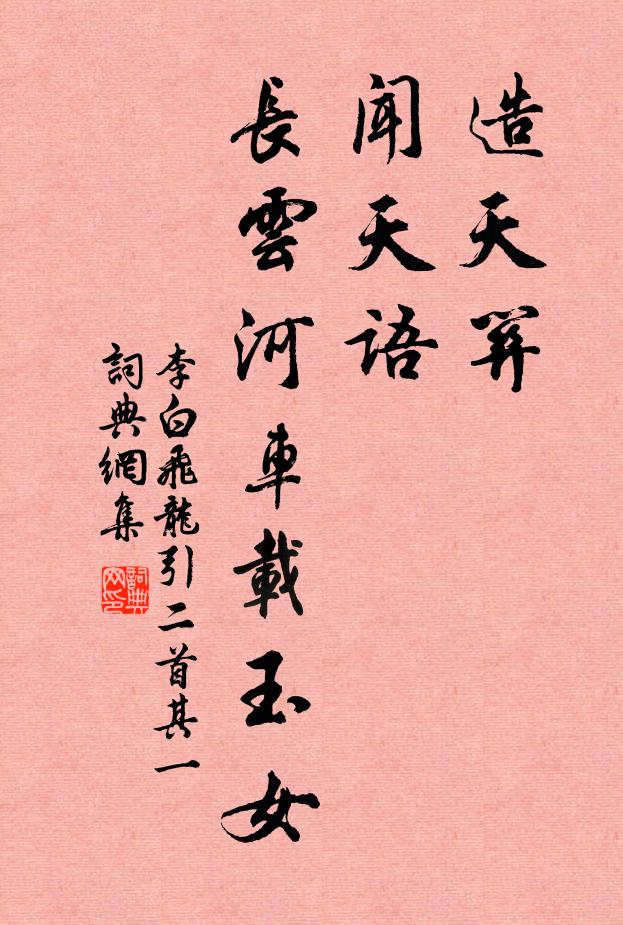 造天关
聞天語
長雲河車載玉女
李白飛龍引二首其一
詞典網集
詞典网印